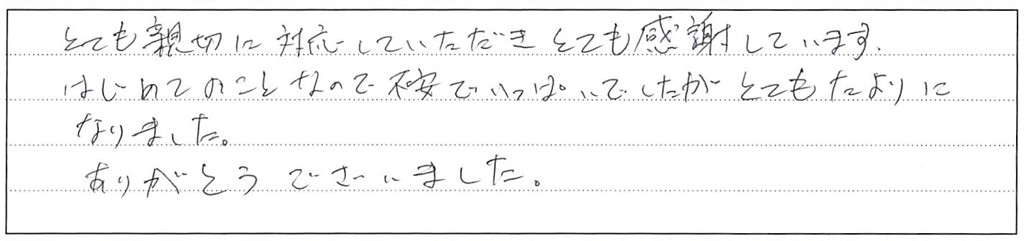 とても親切に対応していただきとても感謝しています.
はじめてのことなので不安でいっぱいでしたがとてもたよりに
なりました。
ありがとうございました。